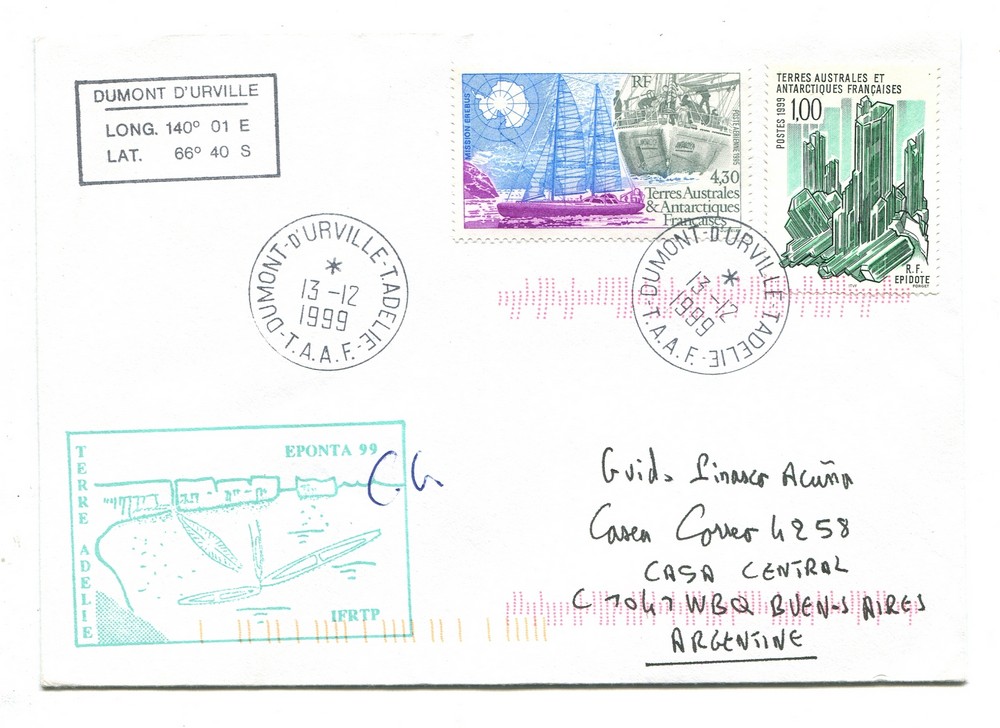 DUMONT D'URVILLE
LONG. 140° 01 E
LAT. 66° 40 S
MISSION EREBUS
RF
POSTE AÉRIENNE 1995
4,30
Terres Australes
& Antarctiques
Françaises
TERRES AUSTRALES ET
ANTARCTIQUES FRANÇAISES
POSTES 1999
1,00
R.F.
EPIDOTE
-DUMONT-D'URVILLE-T.ADELIE-
*
13-12
1999
T.A.A.F.
-DUMONT-D'URVILLE-T.ADELIE-
*
13-12
1999
T.A.A.F.
TERRE ADELIE
EPONTA 99
IFRTP
Guido Linasco Acuña
Correo 4258
CASA CENTRAL
C 1047 WBQ BUENOS AIRES
ARGENTINE